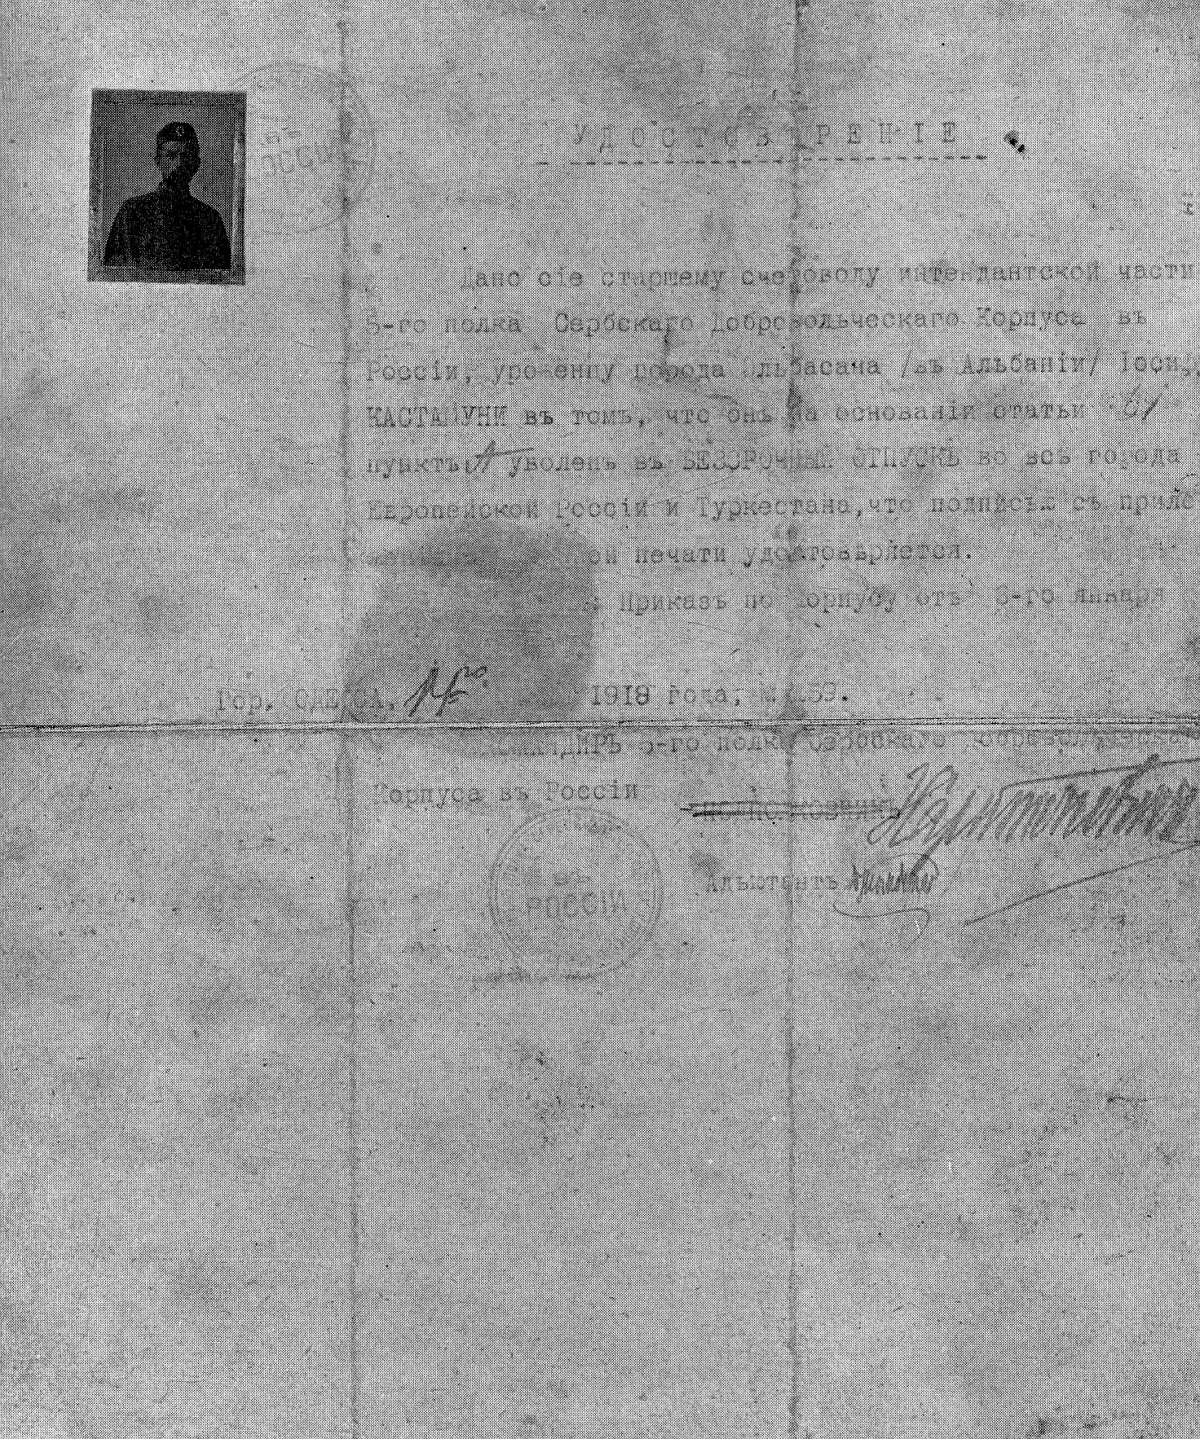 УДОСТОВѢРЕНІЕ
въ
РОССІИ
Дано сіе старшему счетоводу интендантской части
5-го полка Сербскаго Добровольческаго Корпуса въ
Россіи, уроженцу города Эльбасана /въ Альбаніи/
въ томъ, что онъ на основаніи статьи
пунктъ А уволенъ въ БЕЗСРОЧНЫЙ ОТПУСКЪ во всѣ города
Европейской Россіи и Туркестана, что подписью съ прило
печати удостовѣряется.
Приказъ по Корпусу отъ 6-го января
Гор. ОДЕССА, 1918 года,
КОМАНДИРЪ 5-го полка Сербскаго Добровольческаго
Корпуса въ Россіи
ПОЛКОВНИКЪ
Адъютантъ
ВЪ
РОССІИ